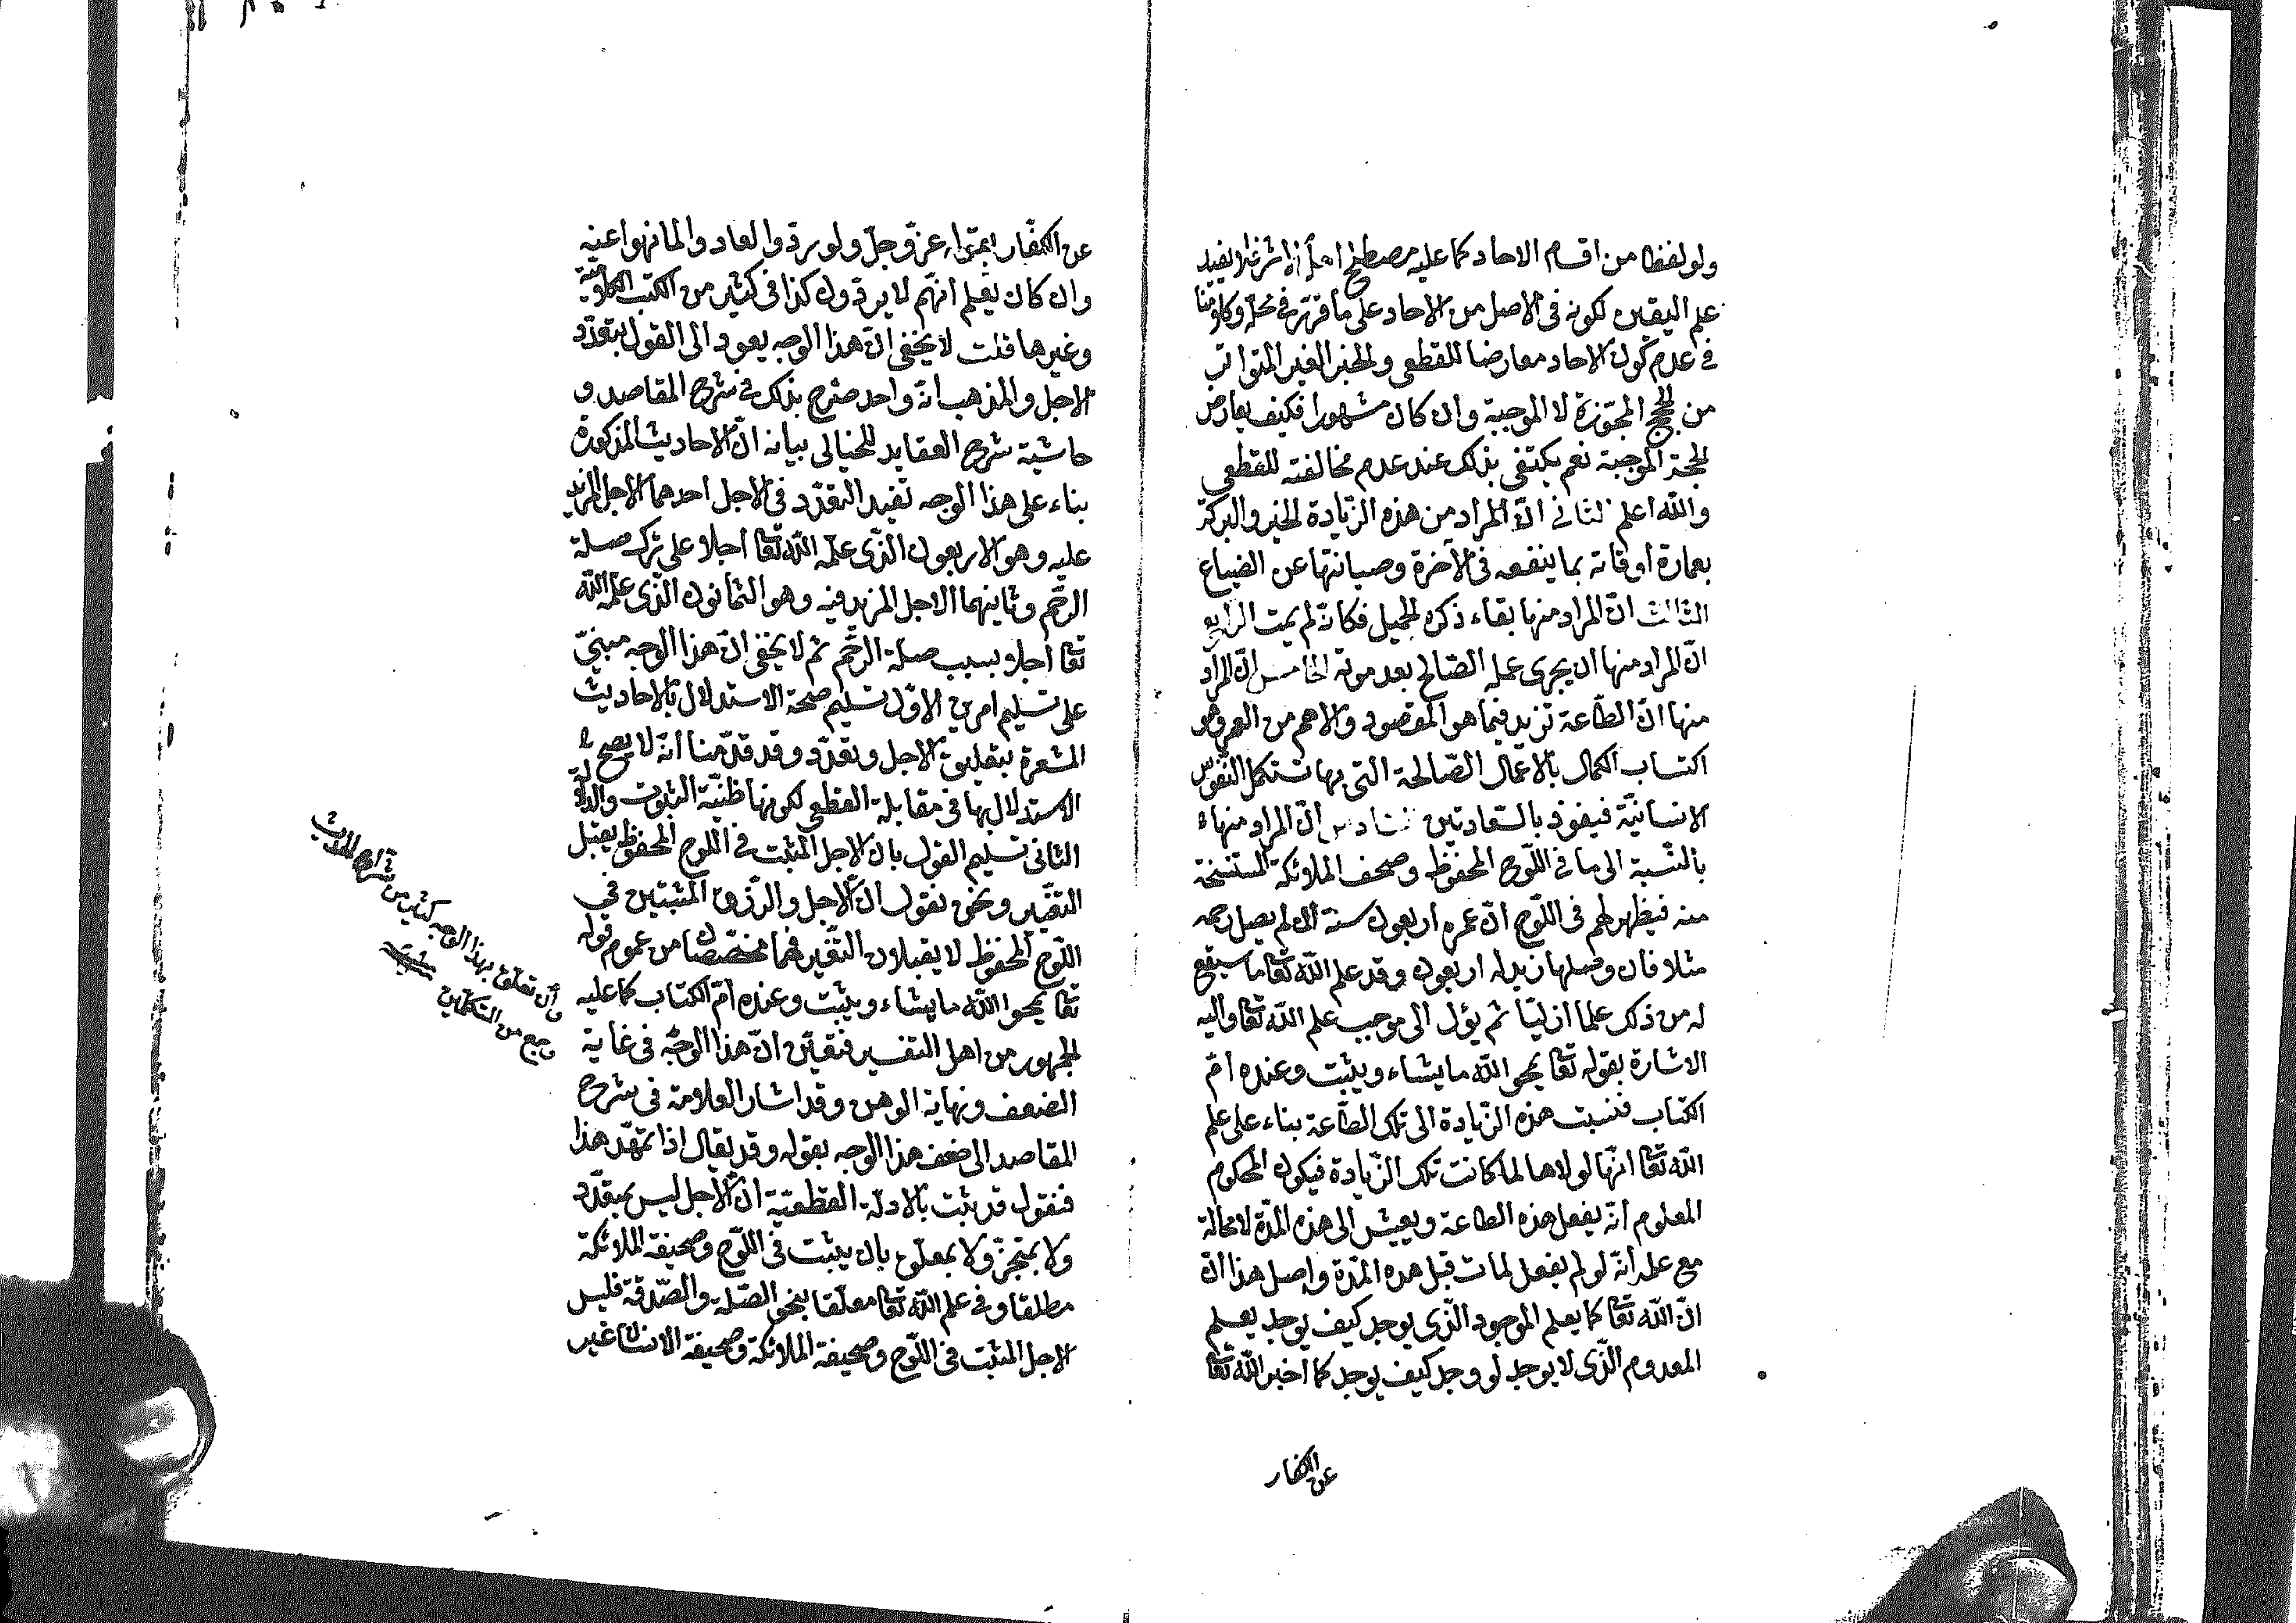 ولو لفظا من اقسام الاحاد كما عليه مصطلح اهل الاثر فلا يفيد
علم اليقين لكونه فى الاصل من الاحاد على ما قرر فى محله وكلامنا
فى عدم كون الاحاد معارضا للقطعى والخبر الغير المتواتر
من الحجج المجوزة لا الموجبة وان كان مشهورا فكيف يعارض
الحجة الموجبة نعم يكتفى بذلك عند عدم مخالفته للقطعى
والله اعلم الثانى انّ المراد من هذه الزّيادة الخير والبركة
بعمارة اوقاته بما ينفعه فى الآخرة وصيانتها عن الضياع
الثالث انّ المراد منها بقاء ذكره الجميل فكانّه لم يمت الرابع
انّ المراد منها ان يجرى عمله الصّالح بعد موته الخامس انّ المراد
منها انّ الطّاعة تزيد فيما هو المقصود والاهم من العمر وهو
اكتساب الكمال بالاعمال الصّالحة التى بها تستكمل النّفوس
الانسانيّة فيفوز بالسّعادتين السّادس انّ المراد منها
بالنّسبة الى ما فى اللّوح المحفوظ وصحف الملائكة المستنسخة
منه فيظهر لهم فى اللّوح انّ عمره اربعون سنة ان لم يصل رحمه
مثلا فان وصلها زيد له اربعون وقد علم الله تعا ما سيقع
له من ذلك علما ازليّا ثم يؤل الى موجب علم الله تعا واليه
الاشارة بقوله تعا يمحو الله ما يشاء ويثبت وعنده امّ
الكتاب فنسبت هذه الزّيادة الى تلك الطّاعة بناء على علم
الله تعا انّها لولاها لما كانت تلك الزّيادة فيكون المحكوم
المعلوم انّه يفعل هذه الطاعة ويعيش الى هذه المدّة لا محالة
مع علمه انّه لو لم يفعل لمات قبل هذه المدّة واصل هذا انّ
انّ الله تعا كما يعلم الموجود الّذى يوجد كيف يوجد يعلم
المعدوم الّذى لا يوجد لو وجد كيف يوجد كما اخبر الله تعا
عن الكفار
عن الكفّار بقوله عزّ وجلّ ولو ردّوا لعادوا لما نهوا عنه
وان كان يعلم انّهم لا يردّون كذا فى كثير من الكتب الكلاميّة
وغيرها قلت لا يخفى انّ هذا الوجه يعود الى القول بتعدّد
الاجل والمذهب انّه واحد صرّح بذلك فى شرح المقاصد و
حاشية شرح العقايد للخيالى بيانه انّ الاحاديث المذكورة
بناء على هذا الوجه تفيد التعدّد فى الاجل احدهما الاجل المزيد
عليه وهو الاربعون الّذى علمه الله تعا اجلا على ترك صلة
الرّحم وثاينهما الاجل المزيد فيه وهو الثمانون الّذى علمه الله
تعا اجلا بسبب صلة الرّحم ثم لا يخفى انّ هذا الوجه مبنىّ
على تسليم امرين الاوّل تسليم صحة الاستدلال بالاحاديث
المشعرة بتعليق الاجل وتعدّد وقد قدّمنا انّه لا يصحّ
الاستدلال بها فى مقابلة القطعى لكونها ظنيّة الثبوت والدلالة
الثانى تسليم القول بان الاجل المثبت فى اللّوح المحفوظ يقبل
التغيّير ونحن نقول انّ الاجل والرّزق المثبتين فى
اللّوح المحفوظ لا يقبلان التّغير فهما مخصّصان من عموم قوله
تعا يمحو الله ما يشاء ويثبت وعنده امّ الكتاب كما عليه
الجمهور من اهل التفسير فتعيّن انّ هذا الوجه فى غاية
الضعف ونهاية الوهن وقد اشار العلامة فى شرح
المقاصد الى ضعف هذا الوجه بقوله وقد يقال اذا تمهّد هذا
فنقول قد ثبت بالادلّة القطعيّة انّ الاجل ليس بمتعدّد
ولا بمتجزّ ولا بمعلّق بان يثبت فى اللّوح وصحيفة الملائكة
مطلقا وفى علم الله تعا معلّقا بنحو الصّلة والصّدقة فليس
الاجل المثبت فى اللّوح وصحيفة الملائكة وصحيفة الانسان غير
وان تعلّق بهذا الوجه كثير من شراح الحديث
وجمع من المتكلّمين